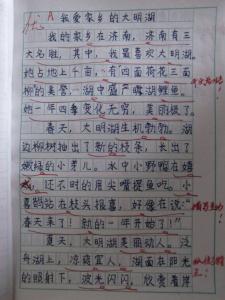 优 A 我爱家乡的大明湖
我的家乡在济南,济南有三
大名胜,其中,我最喜欢大明湖。
她占地上千亩,有四面荷花三面
柳的美誉,湖中盛产
她一年四季变化无穷,美丽极了。
春天,大明湖生机勃勃。湖
边柳树抽出了新的枝条,长出了
嫩绿的小芽儿。水中小野鸭在嬉
戏,还不时的用尖嘴捉鱼吃。小
喜鹊站在枝头报喜,好像在说:“
春天来了!新的一年开始了!”
夏天,大明湖美丽动人。泛
舟湖上,凉爽宜人。湖面在阳光
的照射下,波光闪闪。欣赏着岸